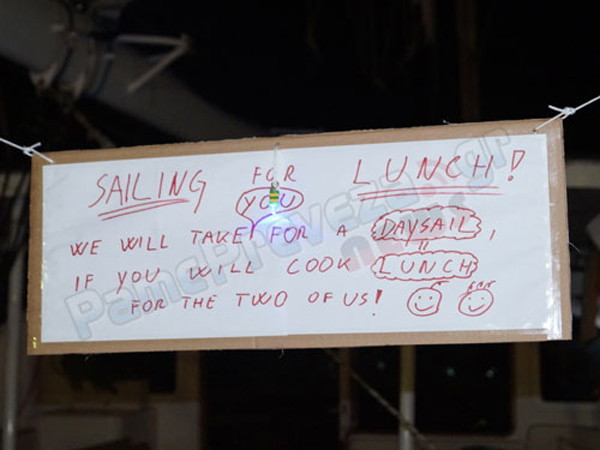 SAILING FOR LUNCH!
WE WILL TAKE YOU FOR A DAYSAIL,
IF YOU WILL COOK LUNCH
FOR THE TWO OF US!
PamePreveza.gr
news